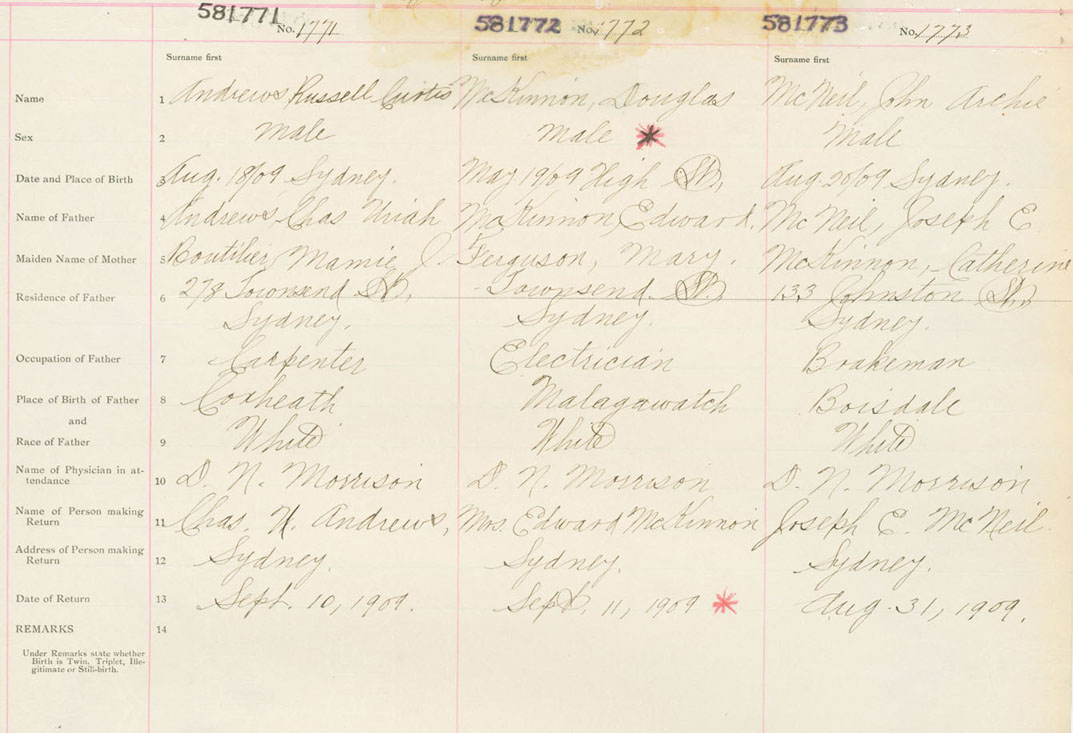 581771 No. 1771 581772 No. 1772 581773 No. 1773
Surname first Surname first Surname first
Name 1 Andrews Russell Curtis McKinnon, Douglas McNeil, John Archie
Sex 2 Male Male Male
Date and Place of Birth 3 Aug. 18/09 Sydney. May 19/09 High St., Aug 20/09 Sydney.
Name of Father 4 Andrews Chas Uriah McKinnon, Edward. McNeil, Joseph E.
Maiden Name of Mother 5 Boutilier, Mamie J. Ferguson, Mary. McKinnon, Catherine
Residence of Father 6 278 Townsend St., Townsend St. 133 Johnston St.,
Sydney. Sydney. Sydney.
Occupation of Father 7 Carpenter Electrician Brakeman
Place of Birth of Father 8 Coxheath Malagawatch Boisdale
and
Race of Father 9 White White White
Name of Physician in at-
tendance 10 D. N. Morrison D. N. Morrison D. N. Morrison
Name of Person making
Return 11 Chas. U. Andrews, Mrs. Edward McKinnon Joseph E. McNeil.
Address of Person making
Return 12 Sydney. Sydney. Sydney.
Date of Return 13 Sept. 10, 1909. Sept. 11, 1909 Aug. 31, 1909.
REMARKS 14
Under Remarks state whether
Birth is Twin, Triplet, Ille-
gitimate or Still-birth.